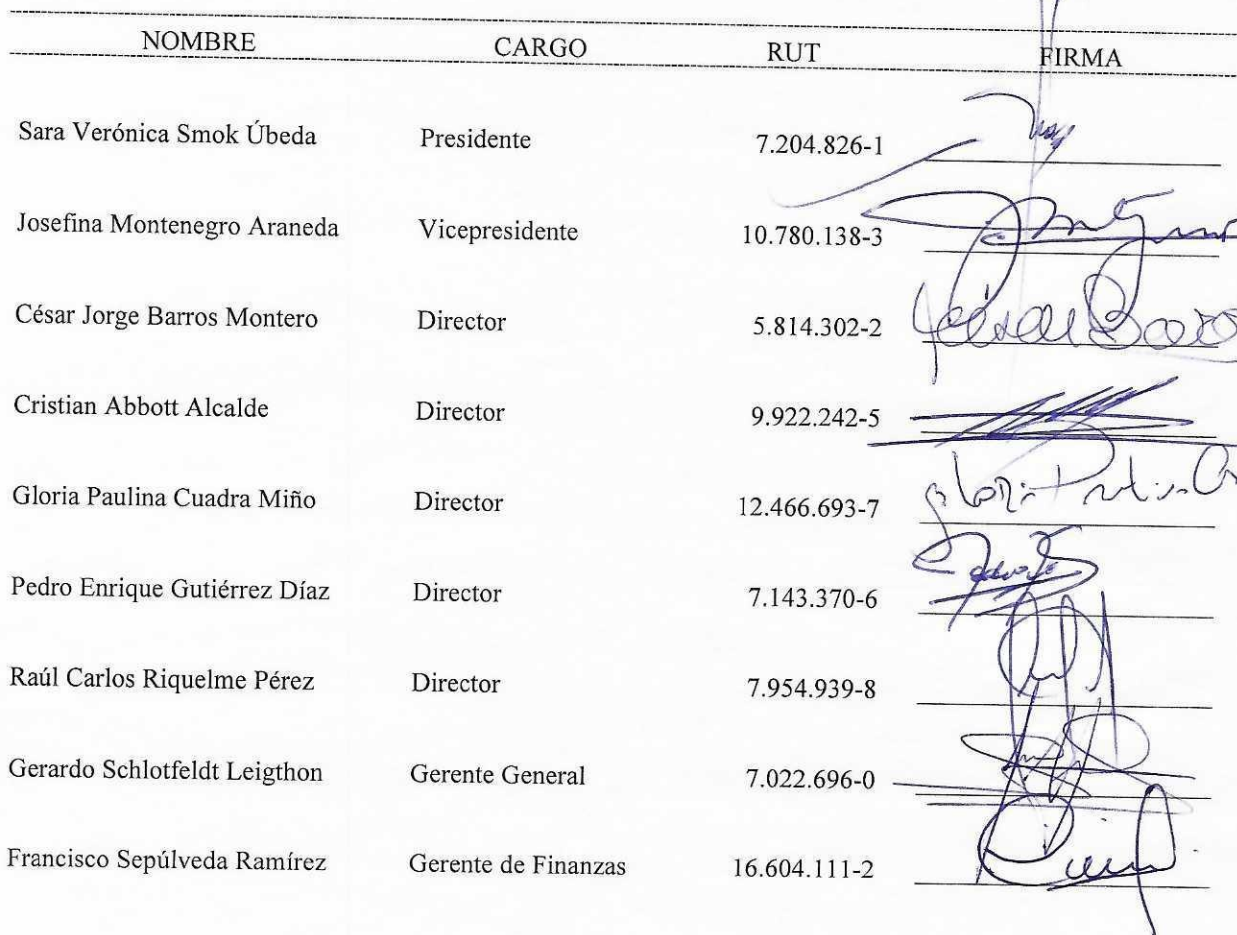 NOMBRE CARGO RUT FIRMA
Sara Verónica Smok Úbeda Presidente 7.204.826-1
Josefina Montenegro Araneda Vicepresidente 10.780.138-3
César Jorge Barros Montero Director 5.814.302-2
Cristian Abbott Alcalde Director 9.922.242-5
Gloria Paulina Cuadra Miño Director 12.466.693-7
Pedro Enrique Gutiérrez Díaz Director 7.143.370-6
Raúl Carlos Riquelme Pérez Director 7.954.939-8
Gerardo Schlotfeldt Leigthon Gerente General 7.022.696-0
Francisco Sepúlveda Ramírez Gerente de Finanzas 16.604.111-2